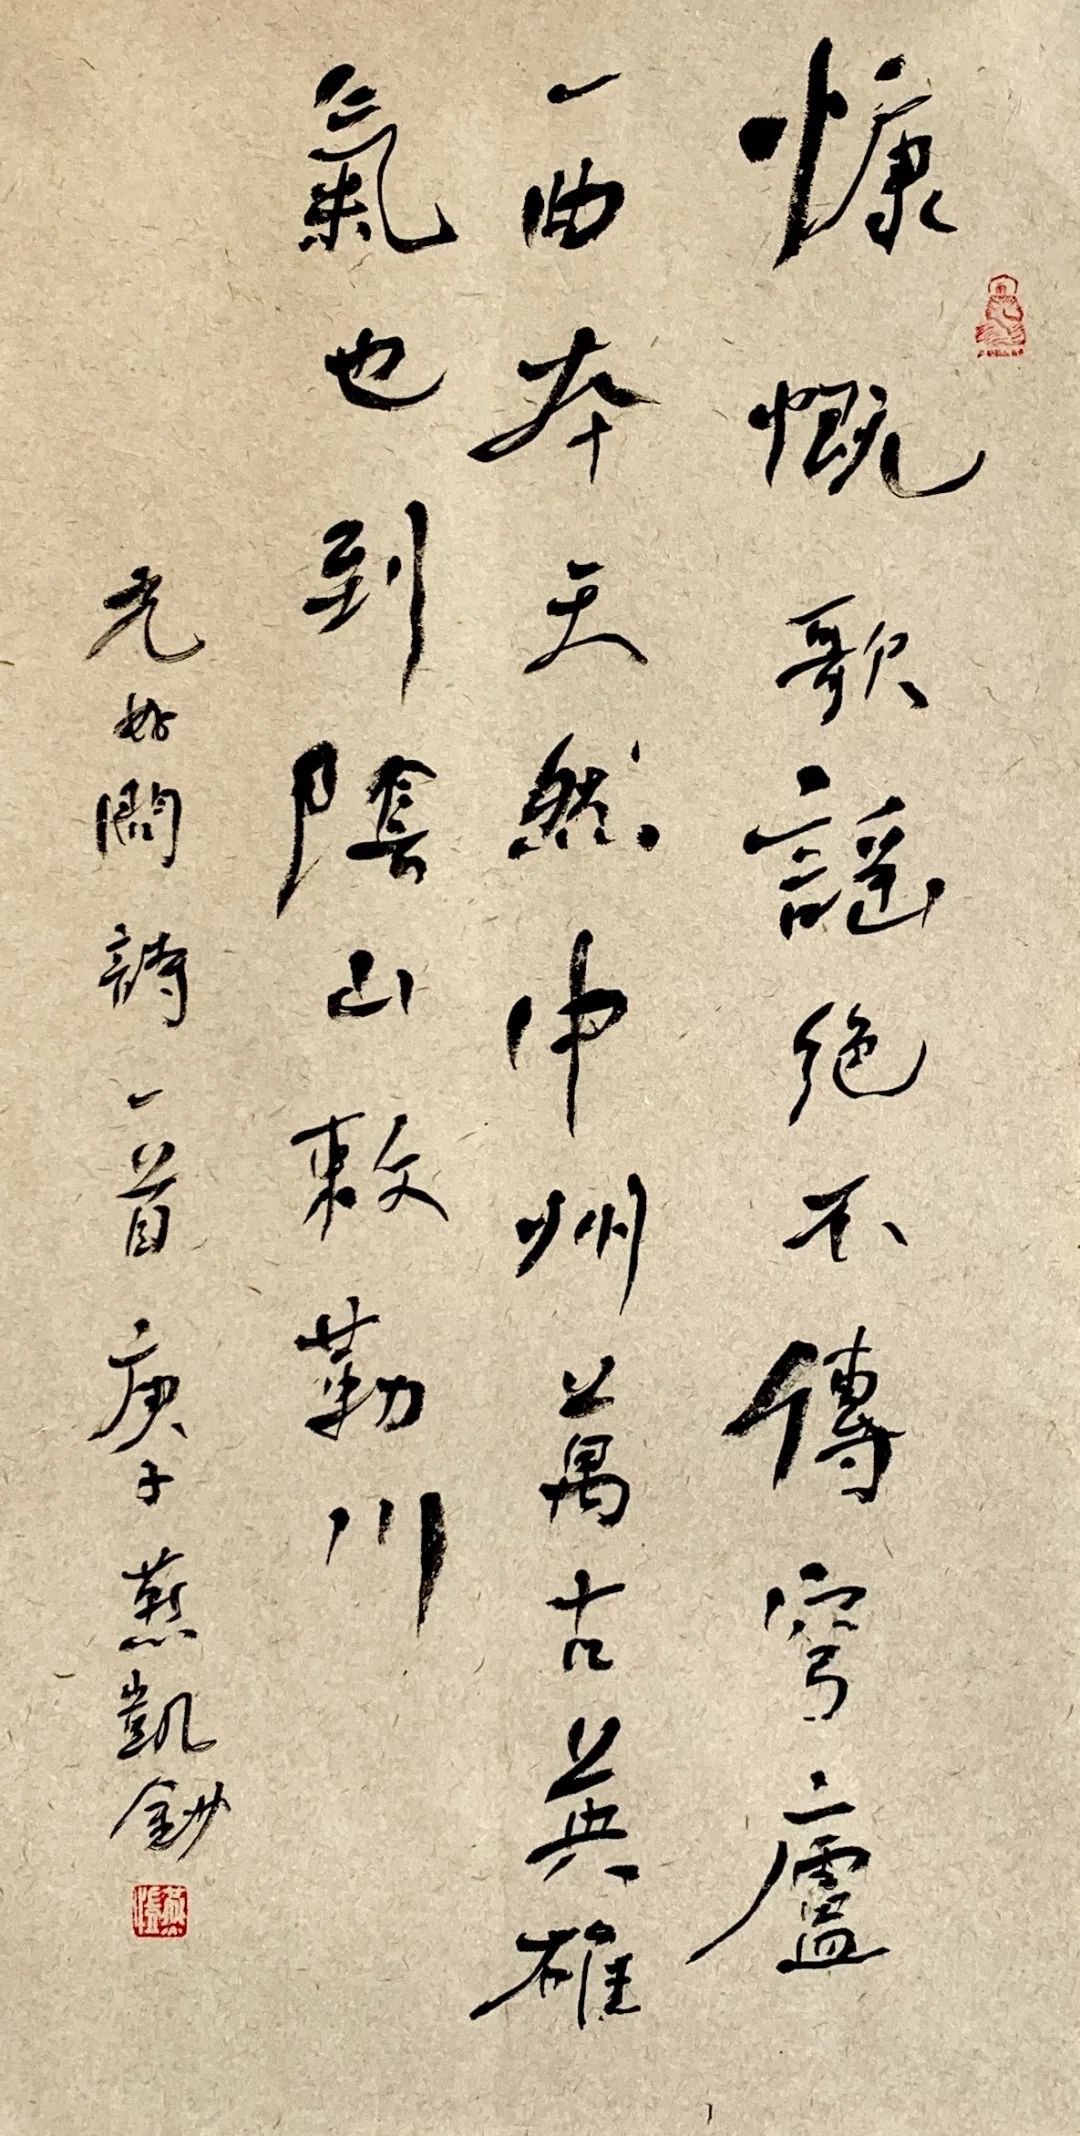 慷慨歌謠絕不傳穹廬
一曲本天然中州萬古英雄
氣也到陰山敕勒川
元好問詩一首庚子燕凱鈔